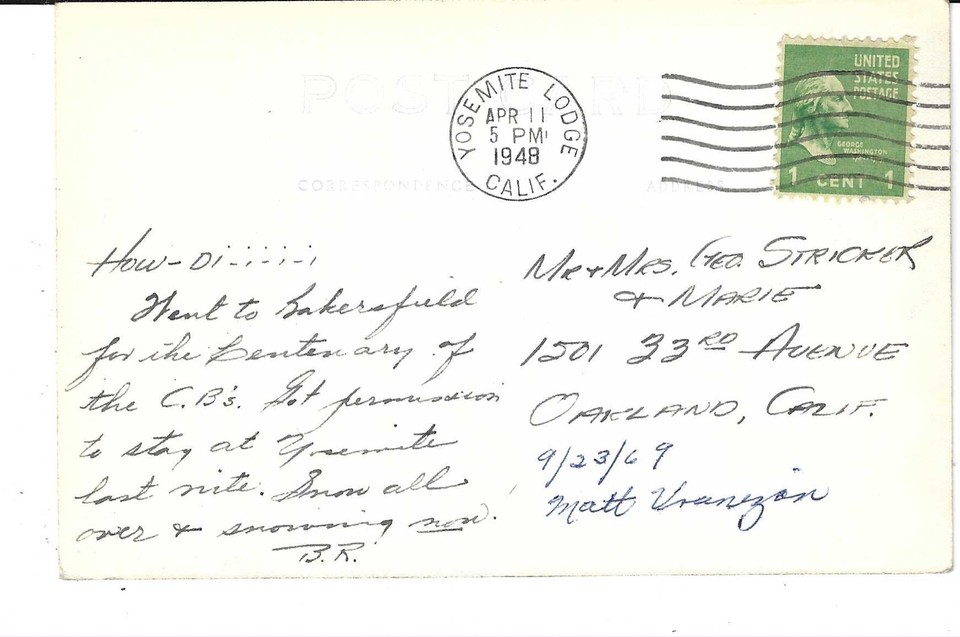 POST CARD
YOSEMITE LODGE
APR 11
5 PM
1948
CALIF.
UNITED
STATES
POSTAGE
GEORGE
WASHINGTON
1 CENT 1
CORRESPONDENCE
ADDRESS
How-Di-i-i-i-i
Went to Bakersfield
for the Centenary of
the C.B's. Got permission
to stay at Yosemite
last nite. Snow all
over & snowing now.
B.R.
MR & MRS. GEO. STRICKER
& MARIE
1501 33RD AVENUE
OAKLAND, CALIF.
9/23/69
Matt